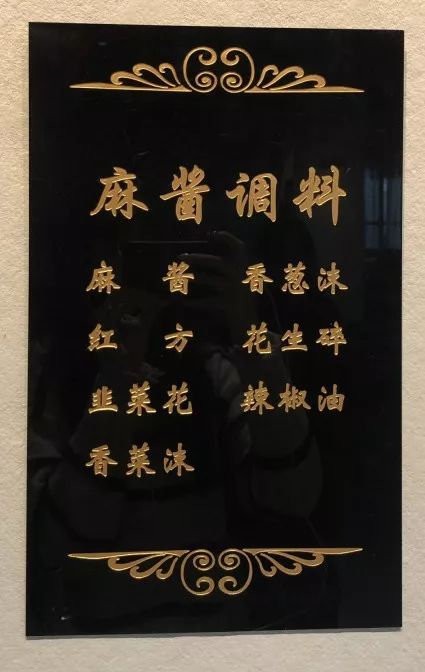 麻酱调料
麻酱 香葱沫
红方 花生碎
韭菜花 辣椒油
香菜沫